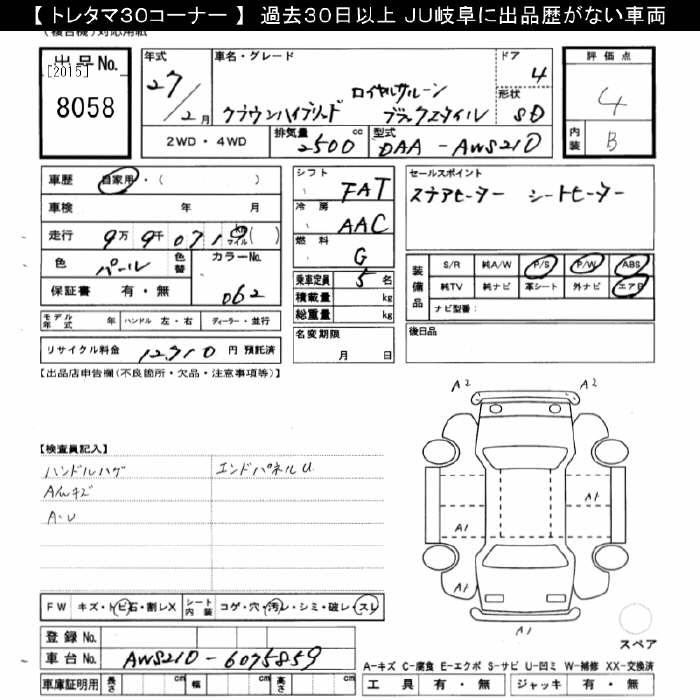 【 トレタマ30コーナー 】 過去30日以上 JU岐阜に出品歴がない車両
出品No.
[2015]
8058
年式
27/2月
車名・グレード
ロイヤルサルーン
クラウンハイブリッド ブラックスタイル
ドア
4
形状
SD
評価点
4
内装
B
2WD・4WD
排気量
2500
cc
型式
DAA-AWS210
車歴
自家用・( )
車検 年 月
走行
9万 9千 0719 km マイル ( )
色
パール
色替
カラーNo.
062
保証書 有・無
モデル年式 年
ハンドル 左・右
ディーラー・並行
リサイクル料金 12,710 円 預託済
シフト
FAT
冷房
AAC
燃料
G
乗車定員 5 名
積載量 kg
総重量 kg
名変期限
月 日
セールスポイント
ステアヒーター シートヒーター
装備品
S/R 純A/W P/S P/W ABS
純TV 純ナビ 革シート 外ナビ エアB
ナビ型番:
後日品
【出品店申告欄(不良箇所・欠品・注意事項等)】
【検査員記入】
ハンドルハゲ エンドパネルU
AWキズ
A・U
A2 A2
A1
A1 A1
A2
A1
スペア
FW キズ・トビ石・割レX
シート内装 コゲ・穴・汚レ・シミ・破レ・スレ
登録No.
車台No. AWS210-6075859
車庫証明用 長さ cm 幅 cm 高さ cm
A-キズ C-腐食 E-エクボ S-サビ U-凹ミ W-補修 XX-交換済
工具 有・無 ジャッキ 有・無